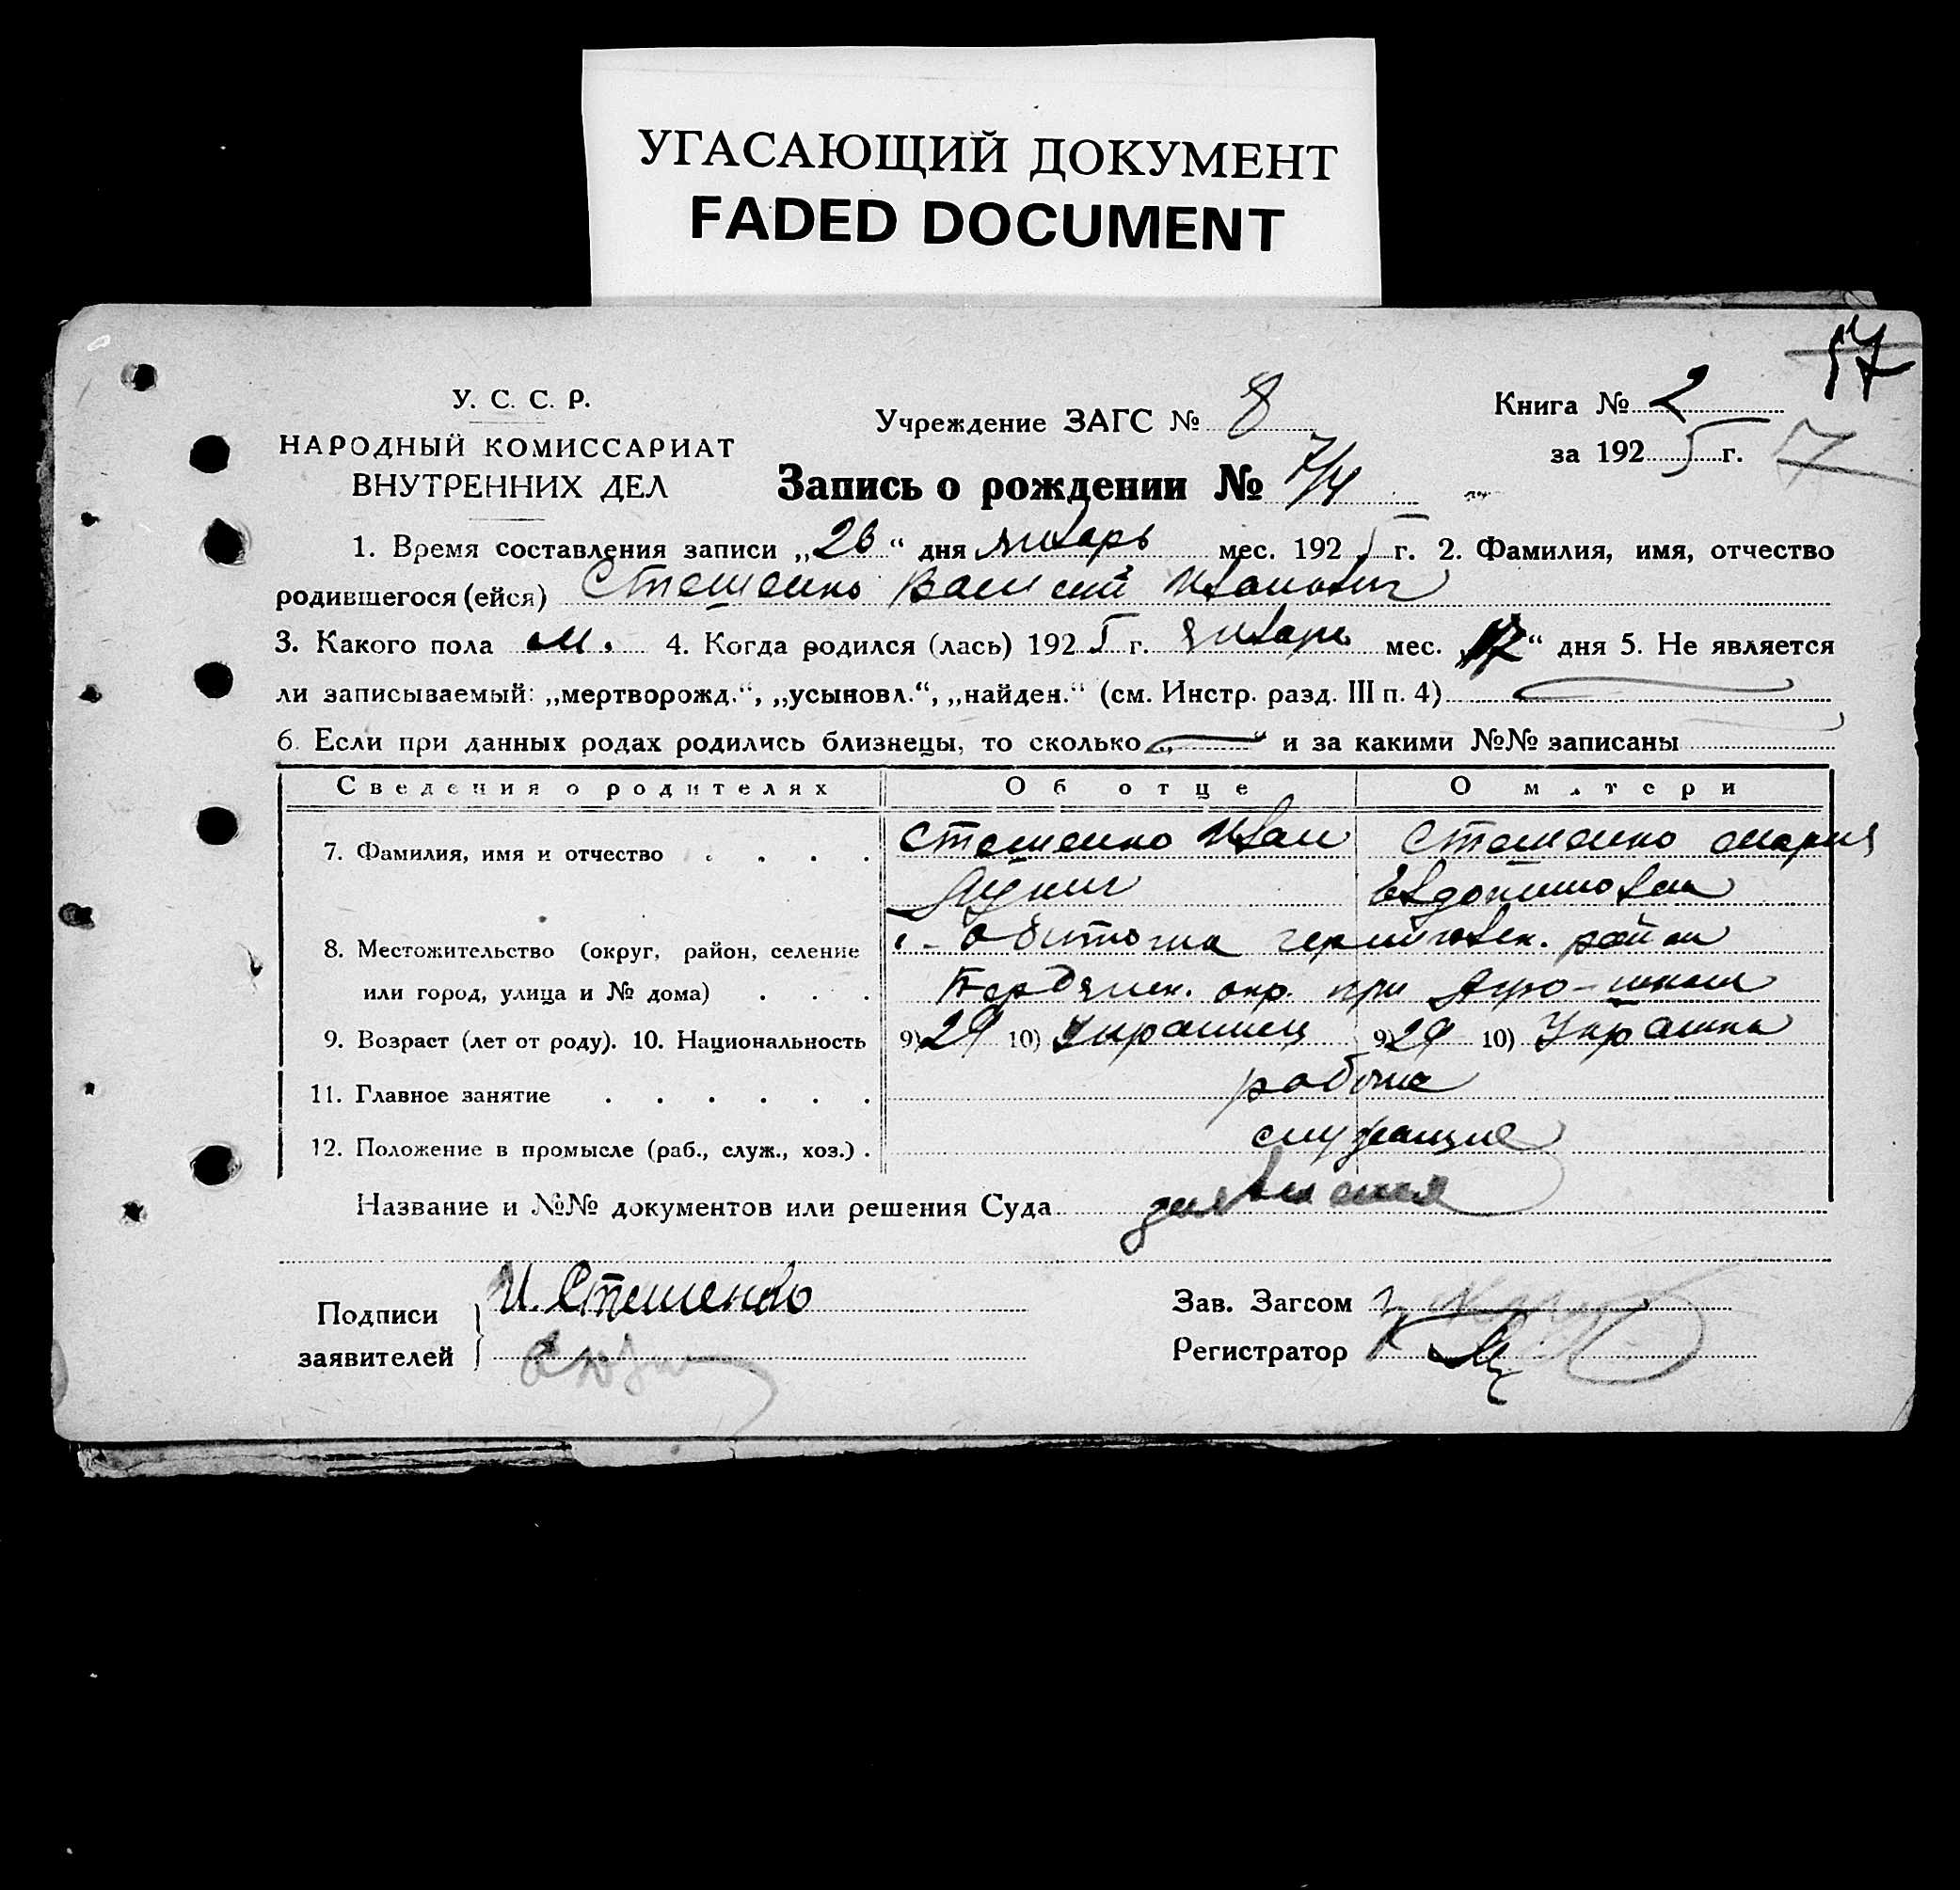 УГАСАЮЩИЙ ДОКУМЕНТ
FADED DOCUMENT
17
У. С. С. Р.
НАРОДНЫЙ КОМИССАРИАТ
ВНУТРЕННИХ ДЕЛ
Учреждение ЗАГС № 8
Книга № 2
за 1925 г.
7
Запись о рождении № 7/4
1. Время составления записи „26“ дня январь мес. 1925 г. 2. Фамилия, имя, отчество
родившегося (ейся) Стешенко Василий Иванович
3. Какого пола м. 4. Когда родился (лась) 1925 г. январь мес. „“ дня 5. Не является
ли записываемый: „мертворожд.“, „усыновл.“, „найден.“ (см. Инстр. разд. III п. 4)
6. Если при данных родах родились близнецы, то сколько „ “ и за какими №№ записаны
Сведения о родителях Об отце О матери
7. Фамилия, имя и отчество Стешенко Иван Стешенко Мария
Евдокимовна
8. Местожительство (округ, район, селение с. Обиточна черниговск. район
или город, улица и № дома) Бердянск. окр. при Агро-школе
9. Возраст (лет от роду). 10. Национальность 9) 29 10) Украинец 9) 29 10) Украинка
11. Главное занятие
12. Положение в промысле (раб., служ., хоз.) служащие
Название и №№ документов или решения Суда
Подписи заявителей И. Стешенко
Зав. Загсом
Регистратор